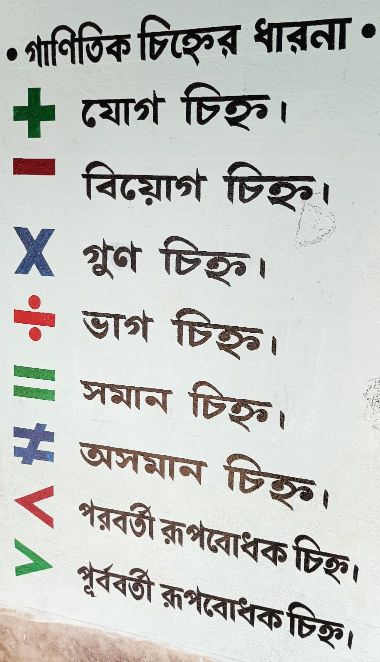 • গাণিতিক চিহ্নের ধারনা •
+ যোগ চিহ্ন।
- বিয়োগ চিহ্ন।
× গুণ চিহ্ন।
÷ ভাগ চিহ্ন।
= সমান চিহ্ন।
≠ অসমান চিহ্ন।
< পরবর্তী রূপবোধক চিহ্ন।
> পূর্ববর্তী রূপবোধক চিহ্ন।